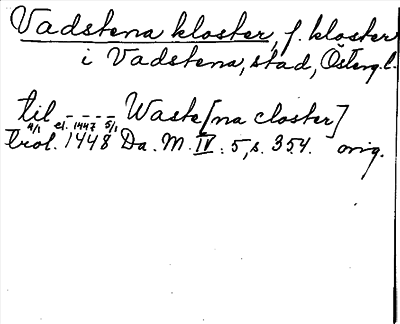 Vadstena kloster, f. kloster
i Vadstena, stad, Österg.l.
til ---- Waste[na closter]
4/1 el. 1447 5/1
trol. 1448 Da. M. IV: 5, s. 354. orig.